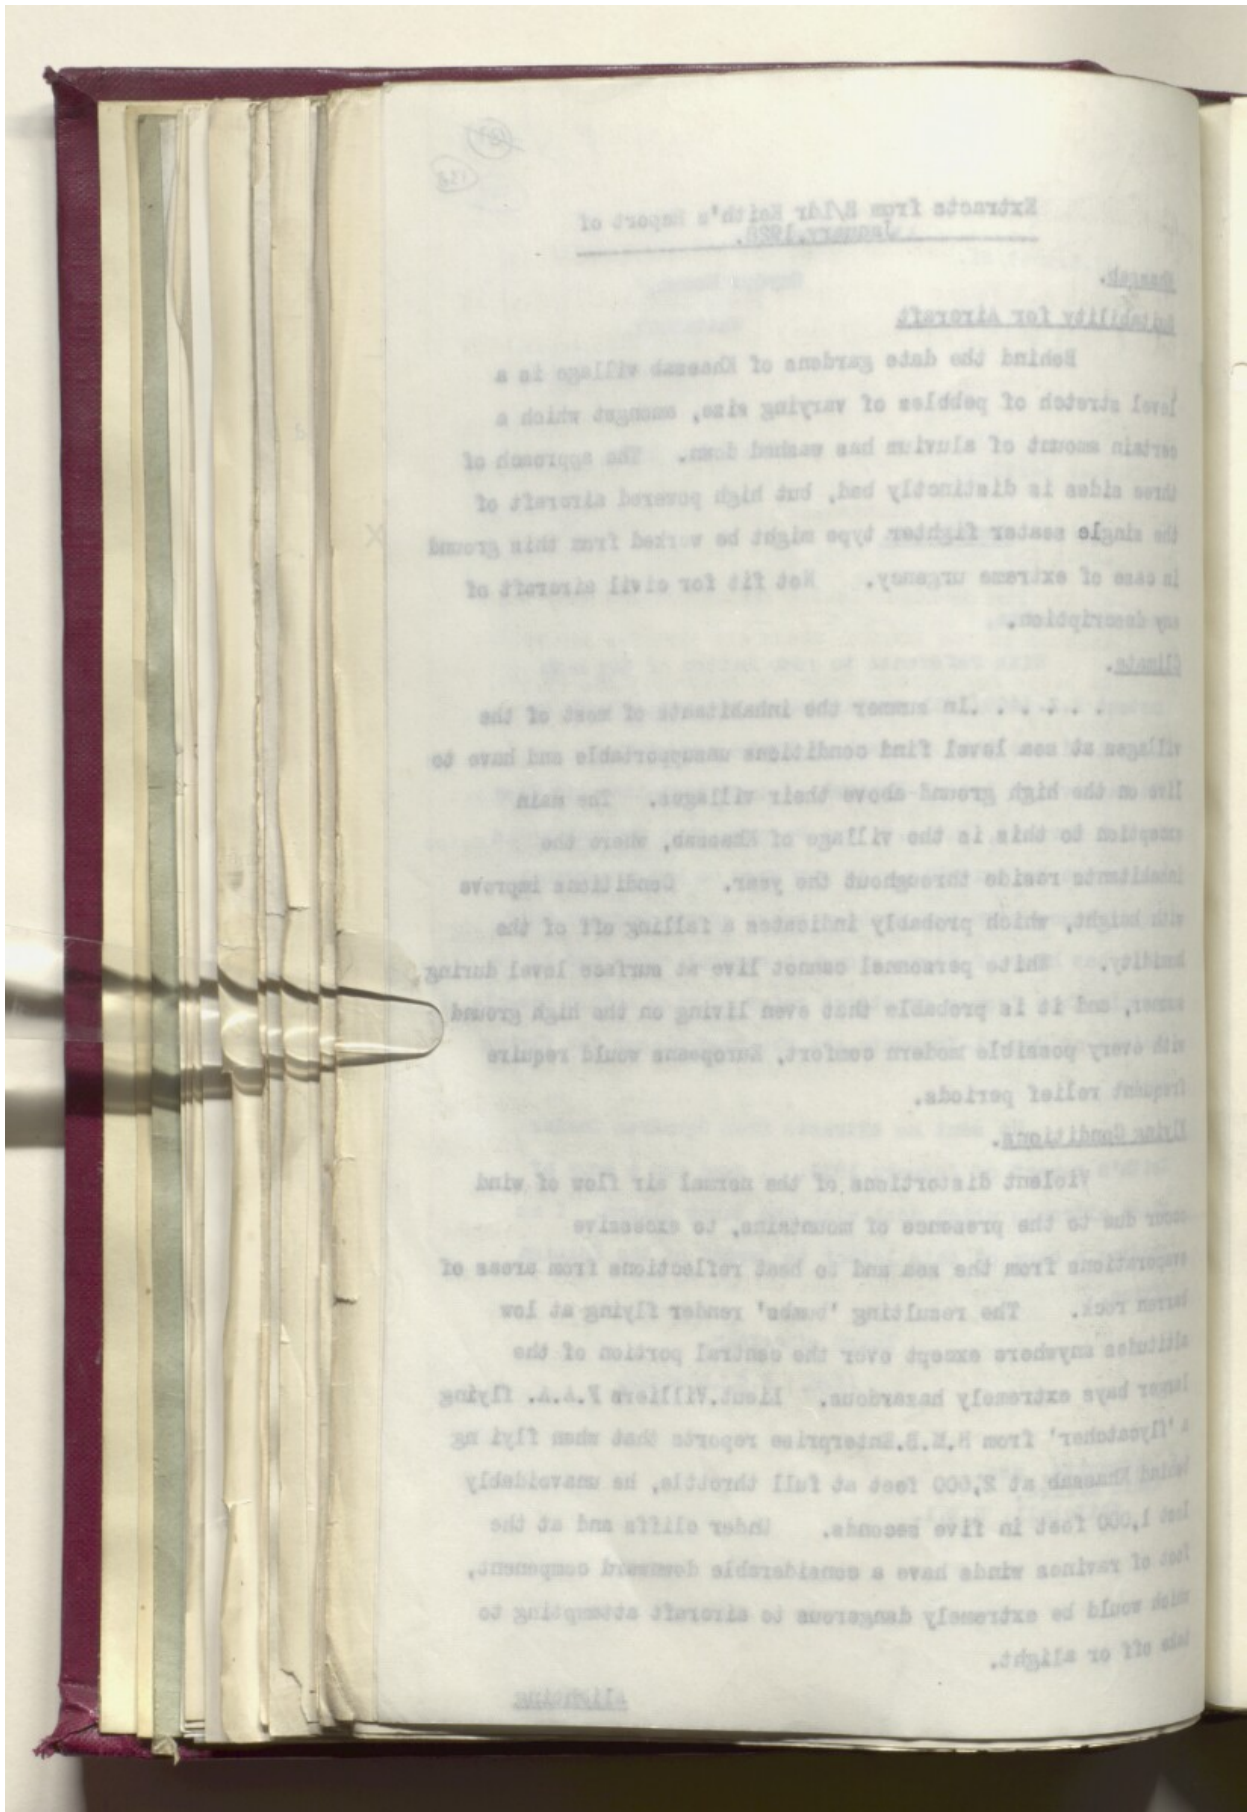 Extracts from S/Ldr Keith's Report of
January, 1928.
Khassab.
Suitability for Aircraft
Behind the date gardens of Khassab village is a
level stretch of pebbles of varying size, amongst which a
certain amount of aluvium has washed down. The approach of
three sides is distinctly bad, but high powered aircraft of
the single seater fighter type might be worked from this ground
in case of extreme urgency. Not fit for civil aircraft of
any description.
Climate.
. . . . .In summer the inhabitants of most of the
villages at sea level find conditions unsupportable and have to
live on the high ground above their villages. The main
exception to this is the village of Khassab, where the
inhabitants reside throughout the year. Conditions improve
with height, which probably indicates a falling off of the
humidity. White personnel cannot live at surface level during
summer, and it is probable that even living on the high ground
with every possible modern comfort, Europeans would require
frequent relief periods.
Flying Conditions.
Violent distortions of the normal air flow of wind
occur due to the presence of mountains, to excessive
evaporations from the sea and to heat reflections from areas of
barren rock. The resulting 'bumbs' render flying at low
altitudes anywhere except over the central portion of the
larger bays extremely hazardous. Lieut.Villiers F.A.A. flying
a 'flycatcher' from H.M.S.Enterprise reports that when flying
behind Khassab at 2,000 feet at full throttle, he unavoidably
lost 1,000 feet in five seconds. Under cliffs and at the
foot of ravines winds have a considerable downward component,
which would be extremely dangerous to aircraft attempting to
take off or alight.
Alighting